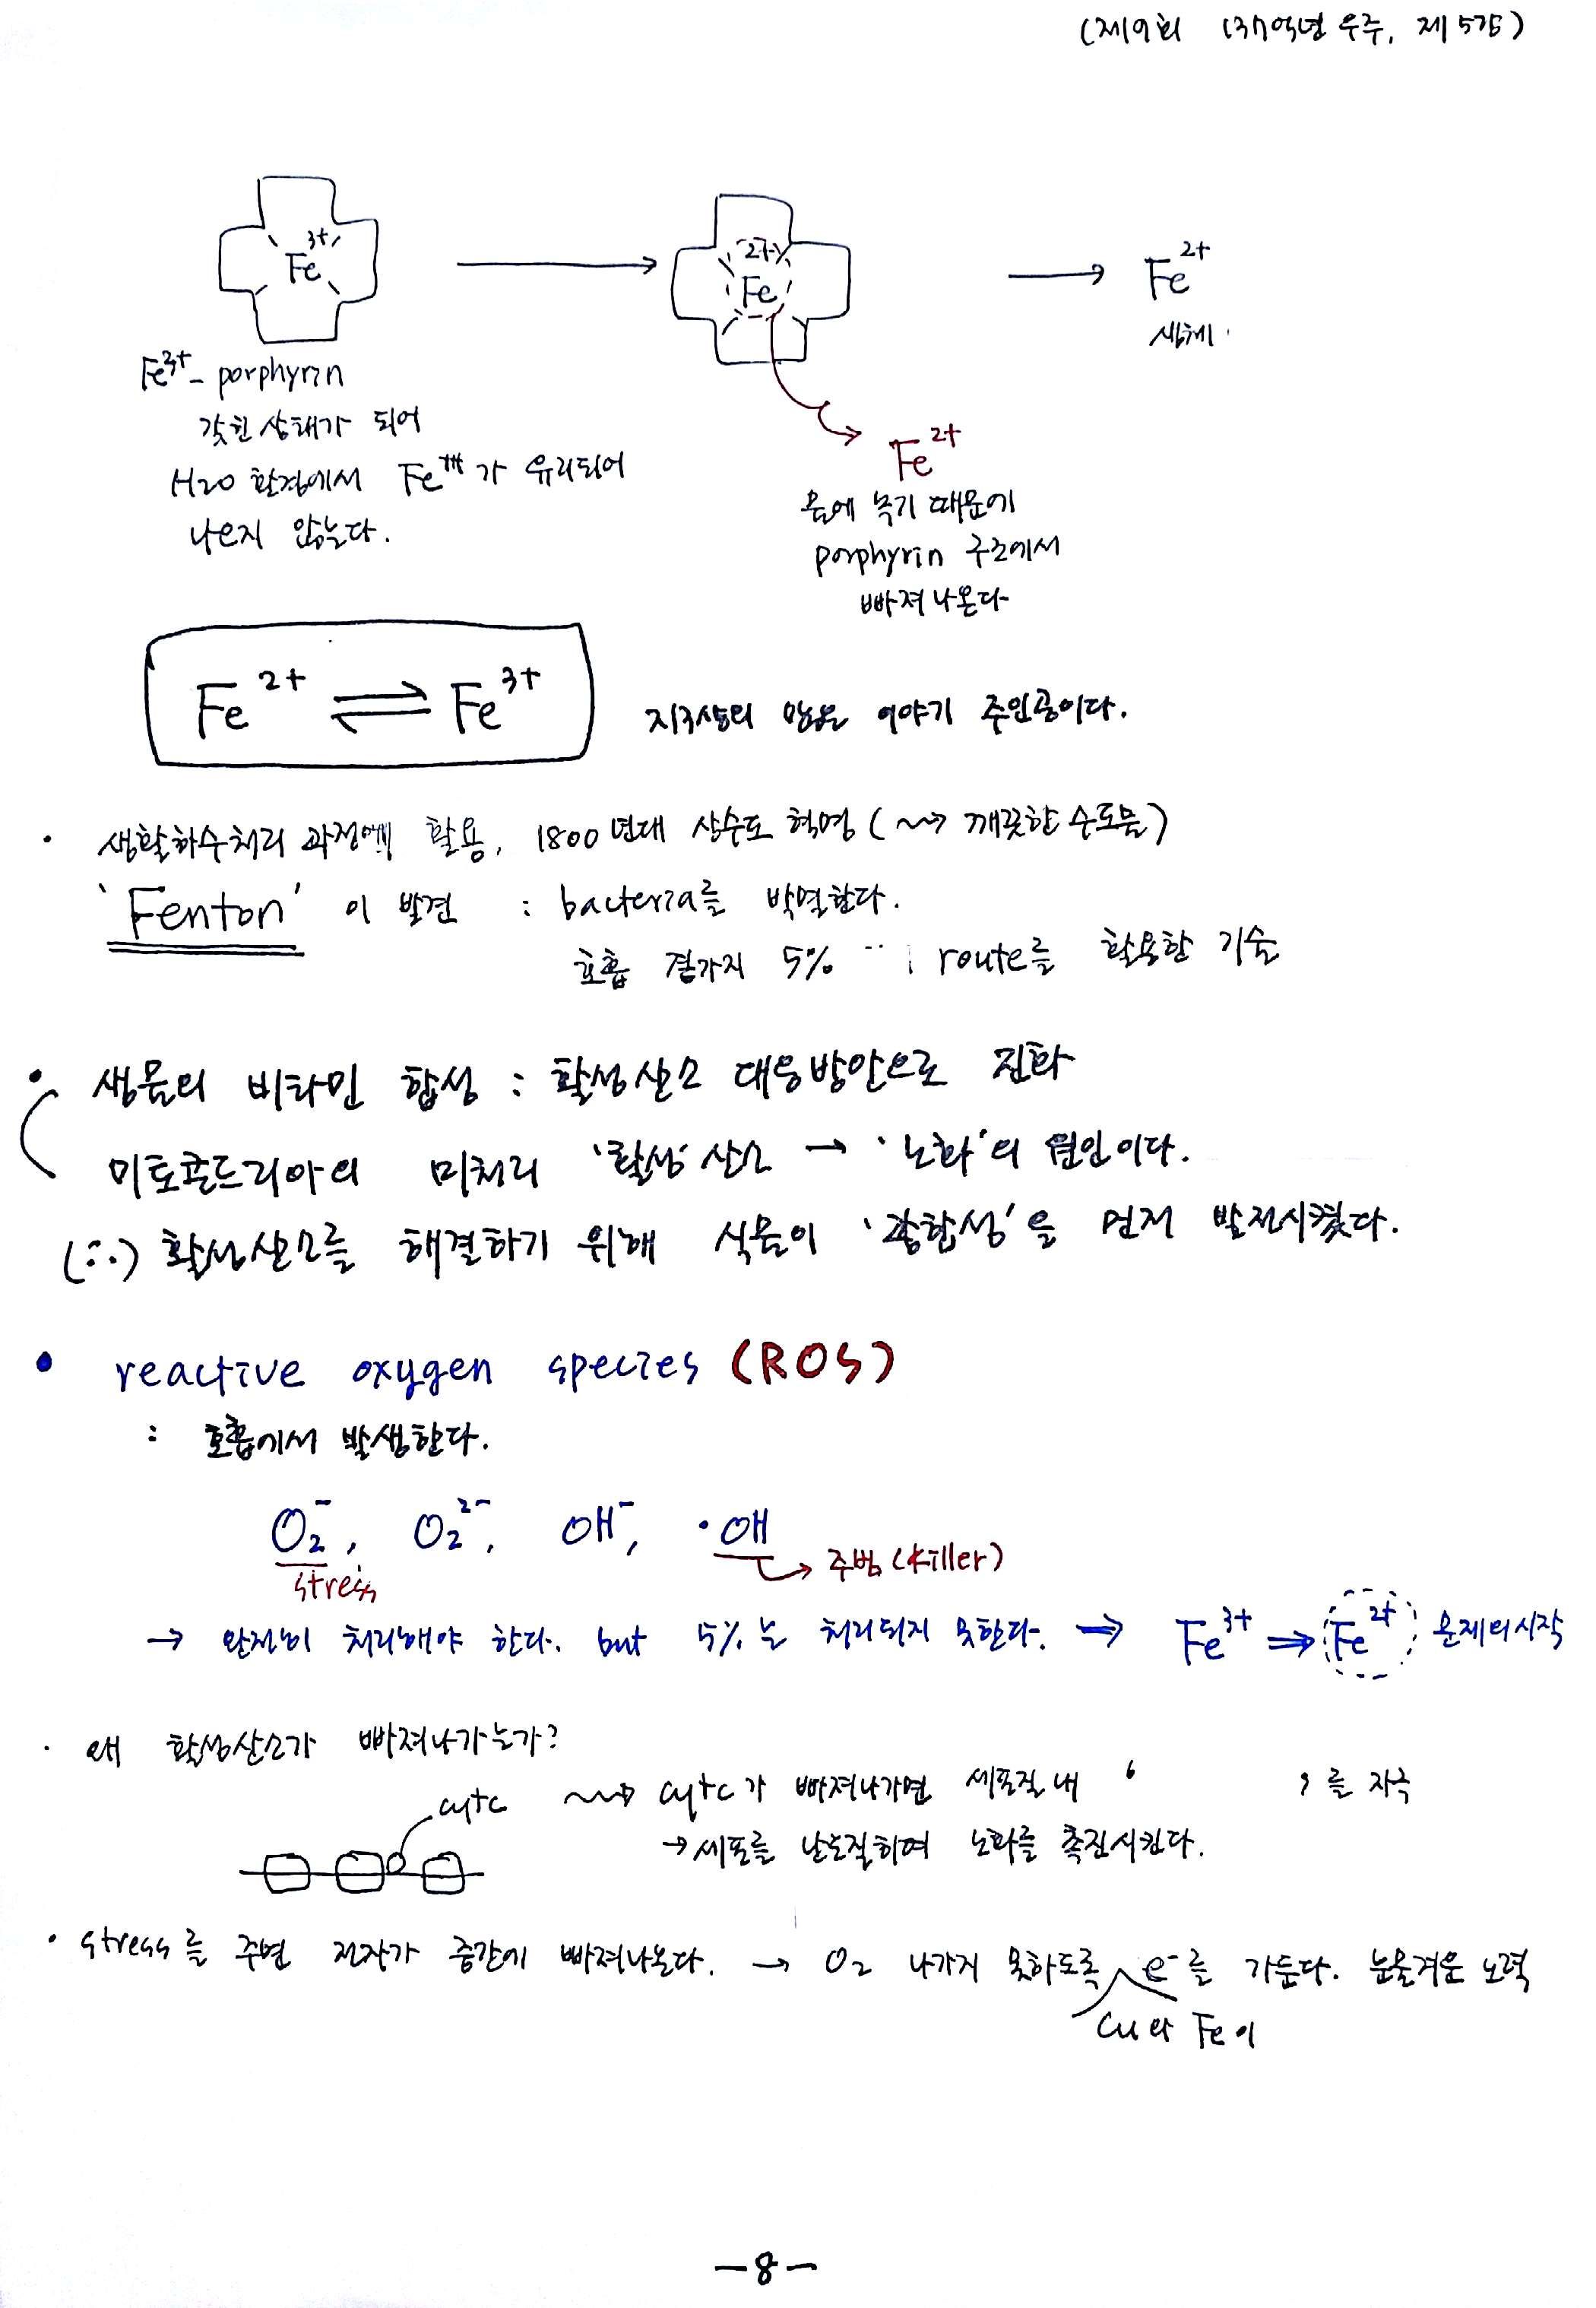 (제19회 137억년 우주, 제5강)
Fe 3+
Fe 2+
Fe 2+
생체
Fe3+ - porphyrin
갖힌 상태가 되어
H2O 환경에서 Fe+++가 유리되어
나오지 않는다.
Fe 2+
물에 녹기 때문에
porphyrin 구조에서
빠져나온다
Fe 2+ ⇌ Fe 3+
지구상의 많은 이야기 주인공이다.
· 생활하수처리 과정에 활용, 1800년대 상수도 혁명 (⇝ 깨끗한 수돗물)
'Fenton'이 발견 : bacteria를 박멸한다.
호흡 곁가지 5% route를 활용한 기술
· 생물의 비타민 합성 : 활성산소 대응방안으로 진화
미토콘드리아의 미처리 '활성'산소 → '노화'의 원인이다.
(∵) 활성산소를 해결하기 위해 식물이 '광합성'을 먼저 발전시켰다.
• reactive oxygen species (ROS)
: 호흡에서 발생한다.
O2-, O2 2-, OH-, ·OH
stress
주범 (killer)
→ 완전히 처리해야 한다. but 5%는 처리되지 못한다. ⇒ Fe3+ ⇒ Fe2+ 문제의 시작
· 왜 활성산소가 빠져나가는가?
cytc ⇝ cytc가 빠져나가면 세포질 내 ' '를 자극
→ 세포를 난도질하며 노화를 촉진시킨다.
· stress를 주면 전자가 중간에 빠져나온다. → O2 나가지 못하도록 e-를 가둔다. 눈물겨운 노력
Cu와 Fe이
-8-